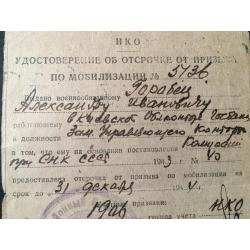 НКО
УДОСТОВЕРЕНИЕ ОБ ОТСРОЧКЕ ОТ ПРИЗЫВА
ПО МОБИЛИЗАЦИИ № 5736
Выдано военнообязанному Горобец
Александру Ивановичу
работающему в Киевской
в должности Зам. Управляющего Конторы
в том, что ему на основании постановления
при СНК СССР 194 г. №
предоставлена отсрочка от призыва по мобилизации на
срок до 31 декабр 194 г.
НКО
группа учета